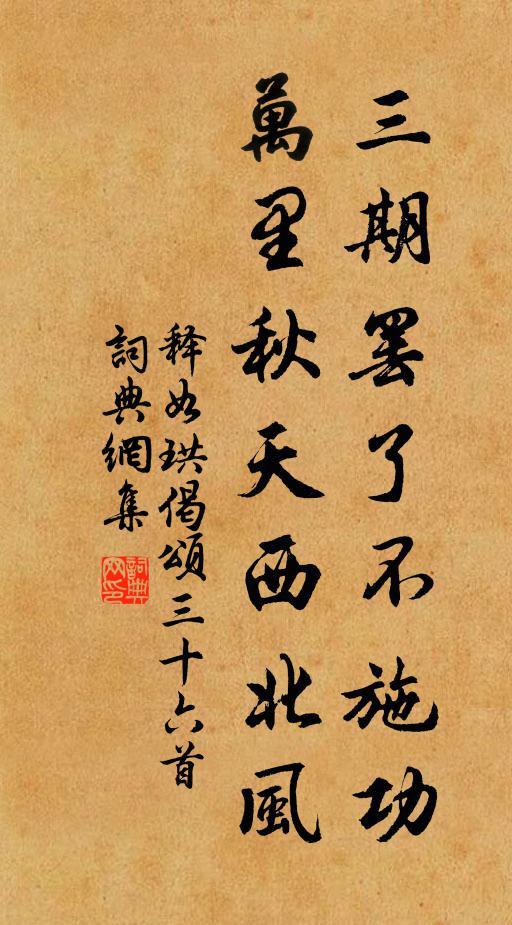 三期罢了不施功
萬里秋天西北風
释如珙偈頌三十六首
詞典網集
詞典网印